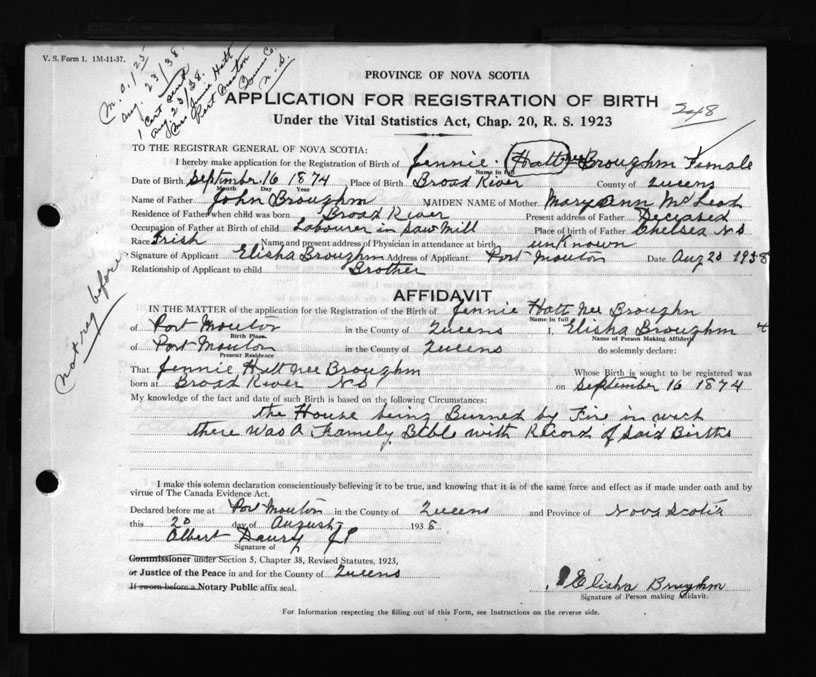 V. S. Form 1. 1M-11-37.
M.O. 1 25
Aug. 23/38.
1 Cert and
Aug. 23/38.
Mrs Jennie Hatt
Port Mouton
Queens Co.
N.S.
PROVINCE OF NOVA SCOTIA
APPLICATION FOR REGISTRATION OF BIRTH
248
Under the Vital Statistics Act, Chap. 20, R. S. 1923
TO THE REGISTRAR GENERAL OF NOVA SCOTIA:
I hereby make application for the Registration of Birth of Jennie. Hatt nee Broughm Female
Name in full
Date of Birth September 16 1874 Place of Birth Broad River County of Queens
Month Day Year
Name of Father John Broughm MAIDEN NAME of Mother Mary Ann McLeod
Residence of Father when child was born Broad River Present address of Father Deceased
Occupation of Father at Birth of Child Labourer in Saw Mill Place of birth of Father Chelsea N S
Race Irish Name and present address of Physician in attendance at birth unKnown
Signature of Applicant Elisha Broughm Address of Applicant Port Mouton Date Aug 20 1938
Relationship of Applicant to child Brother
not reg before.
AFFIDAVIT
IN THE MATTER of the application for the Registration of the Birth of Jennie Hatt Nee Broughn
Name in full
of Port Mouton in the County of Queens I, Elisha Broughm
Birth Place. Name of Person Making Affidavit
of Port Mouton in the County of Queens do solemnly declare:
Present Residence
That Jennie Hatt nee Broughm Whose Birth is sought to be registered was
born at Broad River N S on September 16 1874
My knowledge of the fact and date of such Birth is based on the following Circumstances:
the House being Burned by Fire in wich
there Was A Famely Bible with Record of Said Births
I make this solemn declaration conscientiously believing it to be true, and knowing that it is of the same force and effect as if made under oath and by
virtue of The Canada Evidence Act.
Declared before me at Port Mouton in the County of Queens and Province of Nova Scotia
this 20 day of August 1938
Albert Daury J P
Signature of
Commissioner under Section 5, Chapter 38, Revised Statutes, 1923,
or Justice of the Peace in and for the County of Queens
If sworn before a Notary Public affix seal.
Elisha Brughm
Signature of Person making Affidavit.
For Information respecting the filling out of this Form, see Instructions on the reverse side.